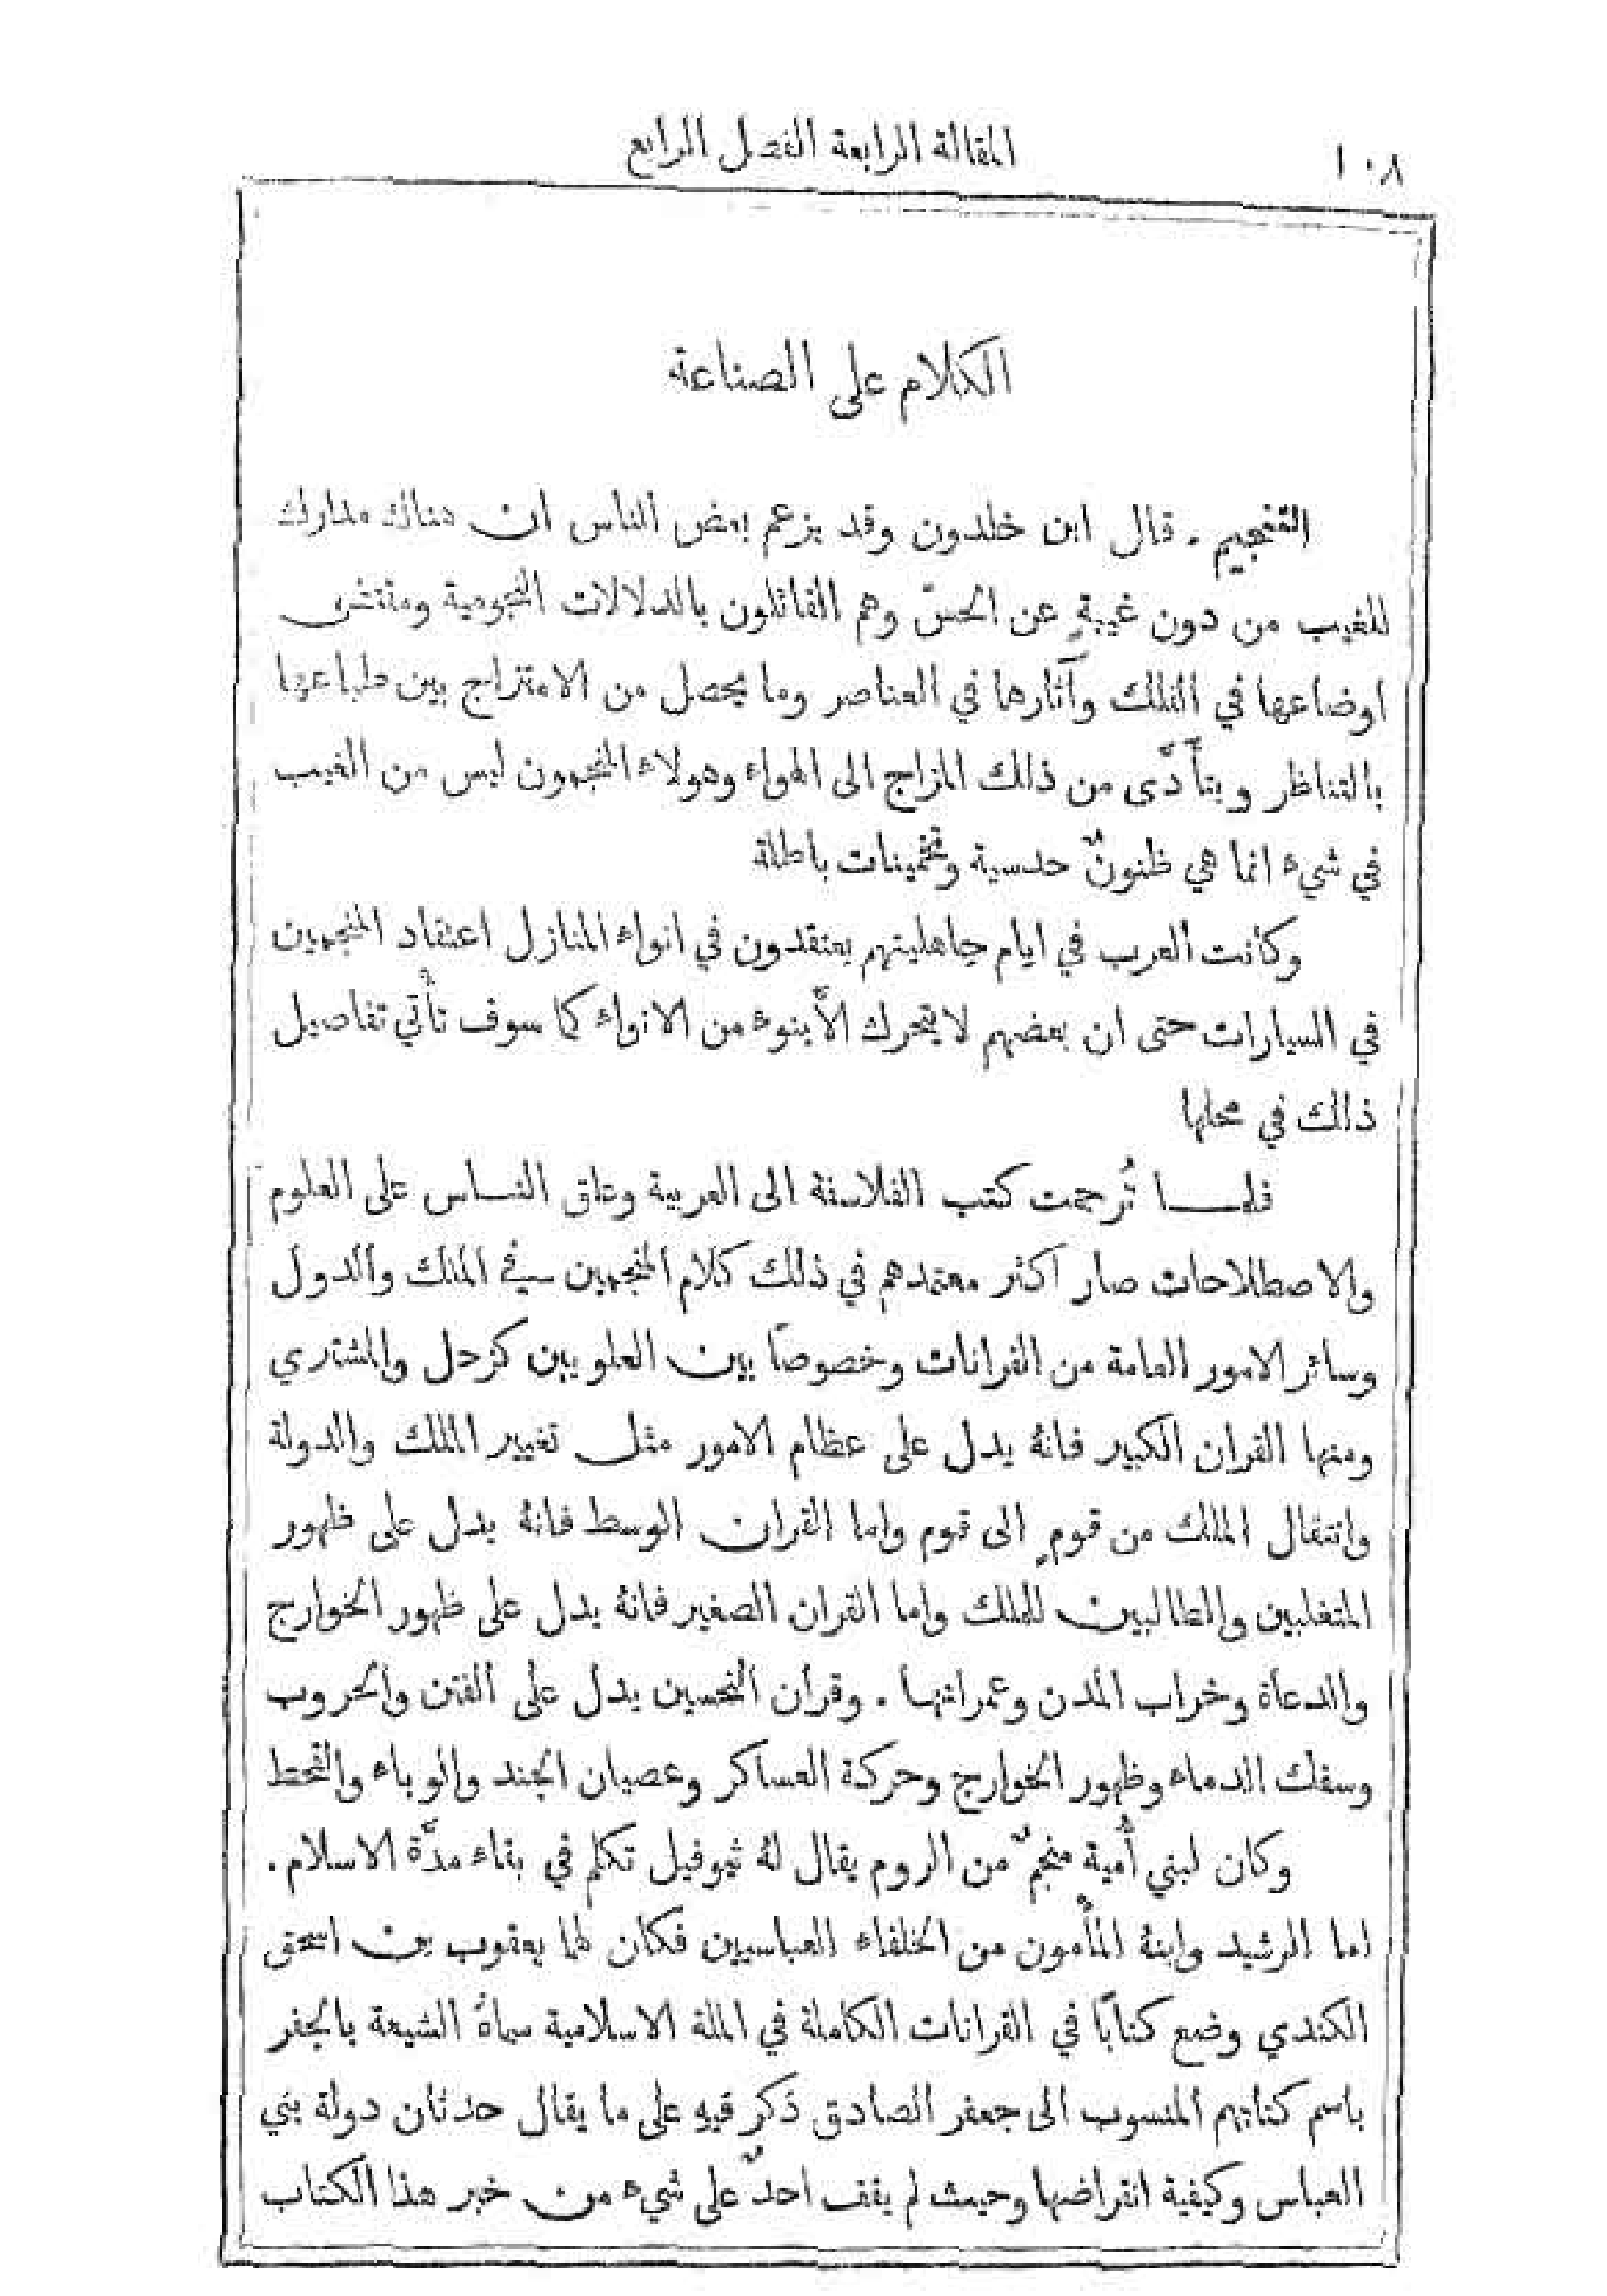 ١٠٨
المقالة الرابعة الفصل الرابع
الكلام على الصناعة
التنجيم . قال ابن خلدون وقد يزعم بعض الناس ان هناك مدارك
للغيب من دون غيبةٍ عن الحسّ وهم القائلون بالدلالات النجومية ومقتضى
اوضاعها في الفلك وآثارها في العناصر وما يحصل من الامتزاج بين طباعها
بالتناظر ويتأَدَّى من ذلك المزاج الى الهواء وهولاء المنجمون ليس من الغيب
في شيء انما هي ظنونٌ حدسية وتخمينات باطلة
وكانت العرب في ايام جاهليتهم يعتقدون في انواء المنازل اعتقاد المنجمين
في السيارات حتى ان بعضهم لا يتحرك الاَّ بنوء من الانواء كما سوف تأْتي تفاصيل
ذلك في محلها
فلمـــا تُرجمت كتب الفلاسفة الى العربية وعلق النــاس على العلوم
والاصطلاحات صار اكثر معتمدهم في ذلك كلام المنجمين في الملك والدول
وسائر الامور العامة من القرانات وخصوصًا بين العلويين كزحل والمشتري
ومنها القران الكبير فانهُ يدل على عظام الامور مثل تغيير الملك والدولة
وانتقال الملك من قومٍ الى قوم واما القران الوسط فانهُ يدل على ظهور
المتغلبين والطالبين للملك واما القران الصغير فانهُ يدل على ظهور الخوارج
والدعاة وخراب المدن وعمرانها . وقران النحسين يدل على الفتن والحروب
وسفك الدماء وظهور الخوارج وحركة العساكر وعصيان الجند والوباء والقحط
وكان لبني أُمية منجمٌ من الروم يقال لهُ ثيوفيل تكلم في بقاء مدَّة الاسلام .
اما الرشيد وابنهُ المأْمون من الخلفاء العباسيين فكان لهما يعقوب بن اسحق
الكندي وضع كتابًا في القرانات الكاملة في الملة الاسلامية سماهُ الشيعة بالجفر
باسم كتابهم المنسوب الى جعفر الصادق ذكر فيهِ على ما يقال حدثان دولة بني
العباس وكيفية انقراضها وحيث لم يقف احدٌ على شيء من خبر هذا الكتاب